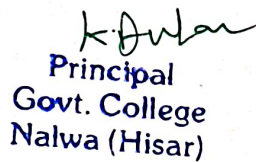 Principal
Govt. College
Nalwa (Hisar)